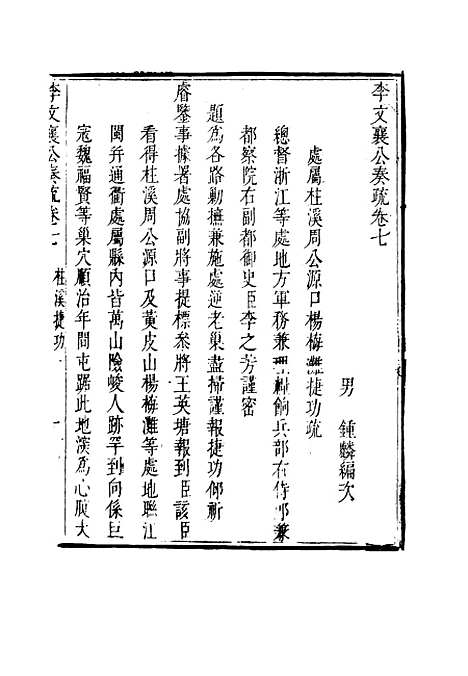 李文襄公奏疏卷七
男　鍾麟編次
處屬桂溪周公源口楊梅灘捷功疏
總督浙江等處地方軍務兼理糧餉兵部右侍郎兼
都察院右副都御史臣李之芳謹密
題為各路勦撫兼施處逆老巢盡掃謹報捷功仰祈
睿鑒事據署處協副將事提標叅將王英塘報到臣該臣
看得桂溪周公源口及黃皮山楊梅灘等處地聯江
閩并通衢處屬縣內皆萬山險峻人跡罕到向係巨
寇魏福賢等巢穴順治年間屯踞此地深為心腹大
李文襄公奏疏卷七　桂溪捷功　一